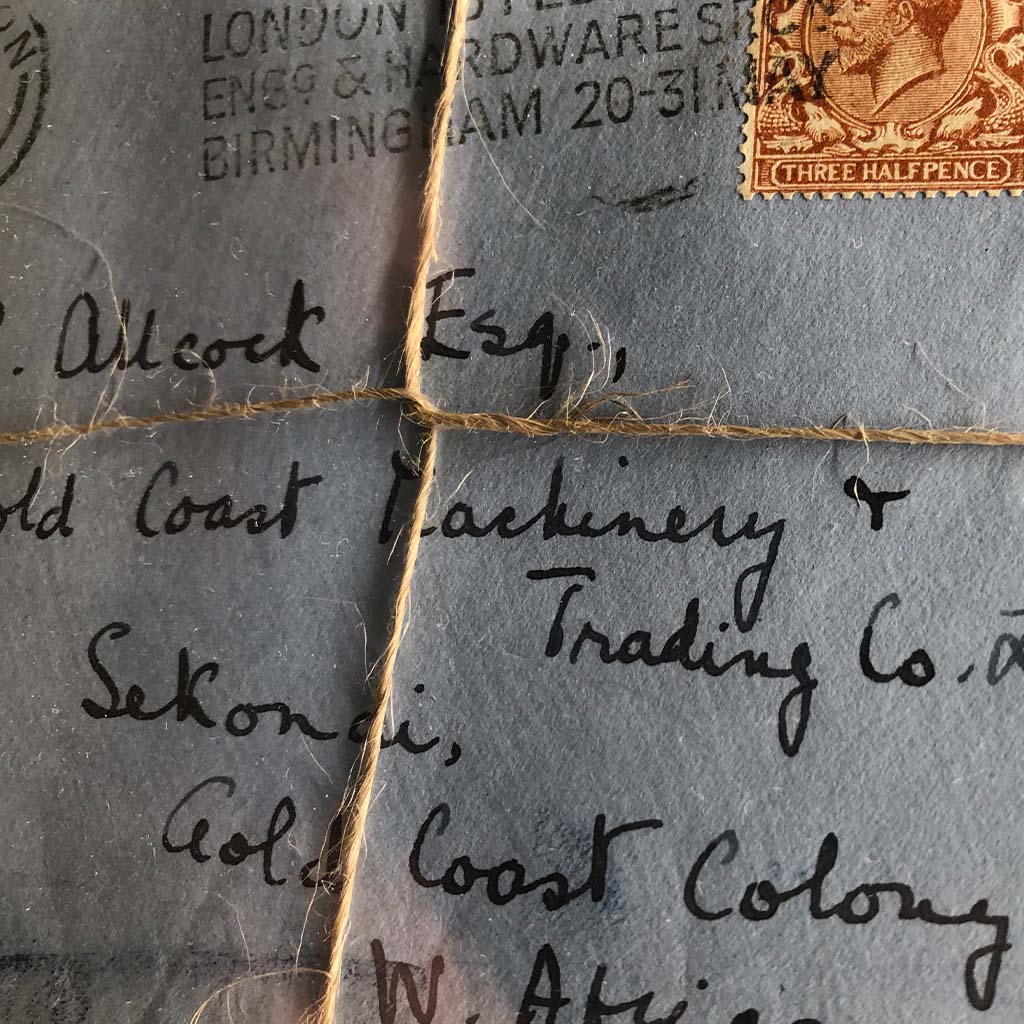 LONDON
ENGG & HARDWARE SECN.
BIRMINGHAM 20-31 MAY
THREE HALFPENCE
. Allcock Esq.,
old Coast Machinery &
Trading Co.
Sekondi,
Gold Coast Colony
W. Africa